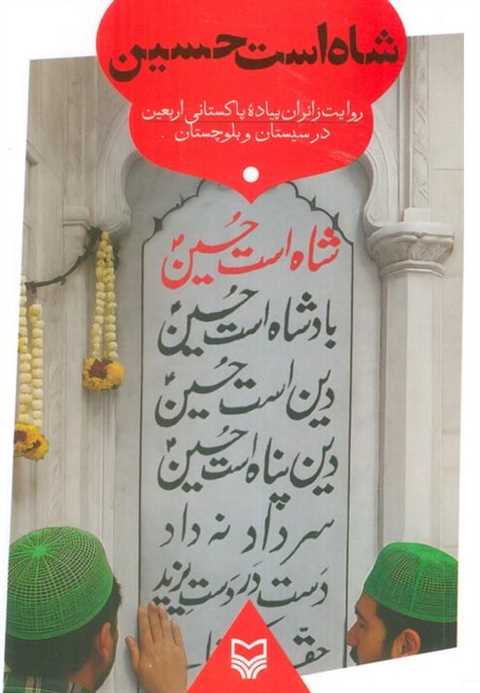 شاه است حسین
روایت زائران پیادهٔ پاکستانی اربعین
در سیستان و بلوچستان
شاہ است حسینؑ
بادشاہ است حسینؑ
دین است حسینؑ
دین پناہ است حسینؑ
سر داد نہ داد
دست در دست یزید
حقہ